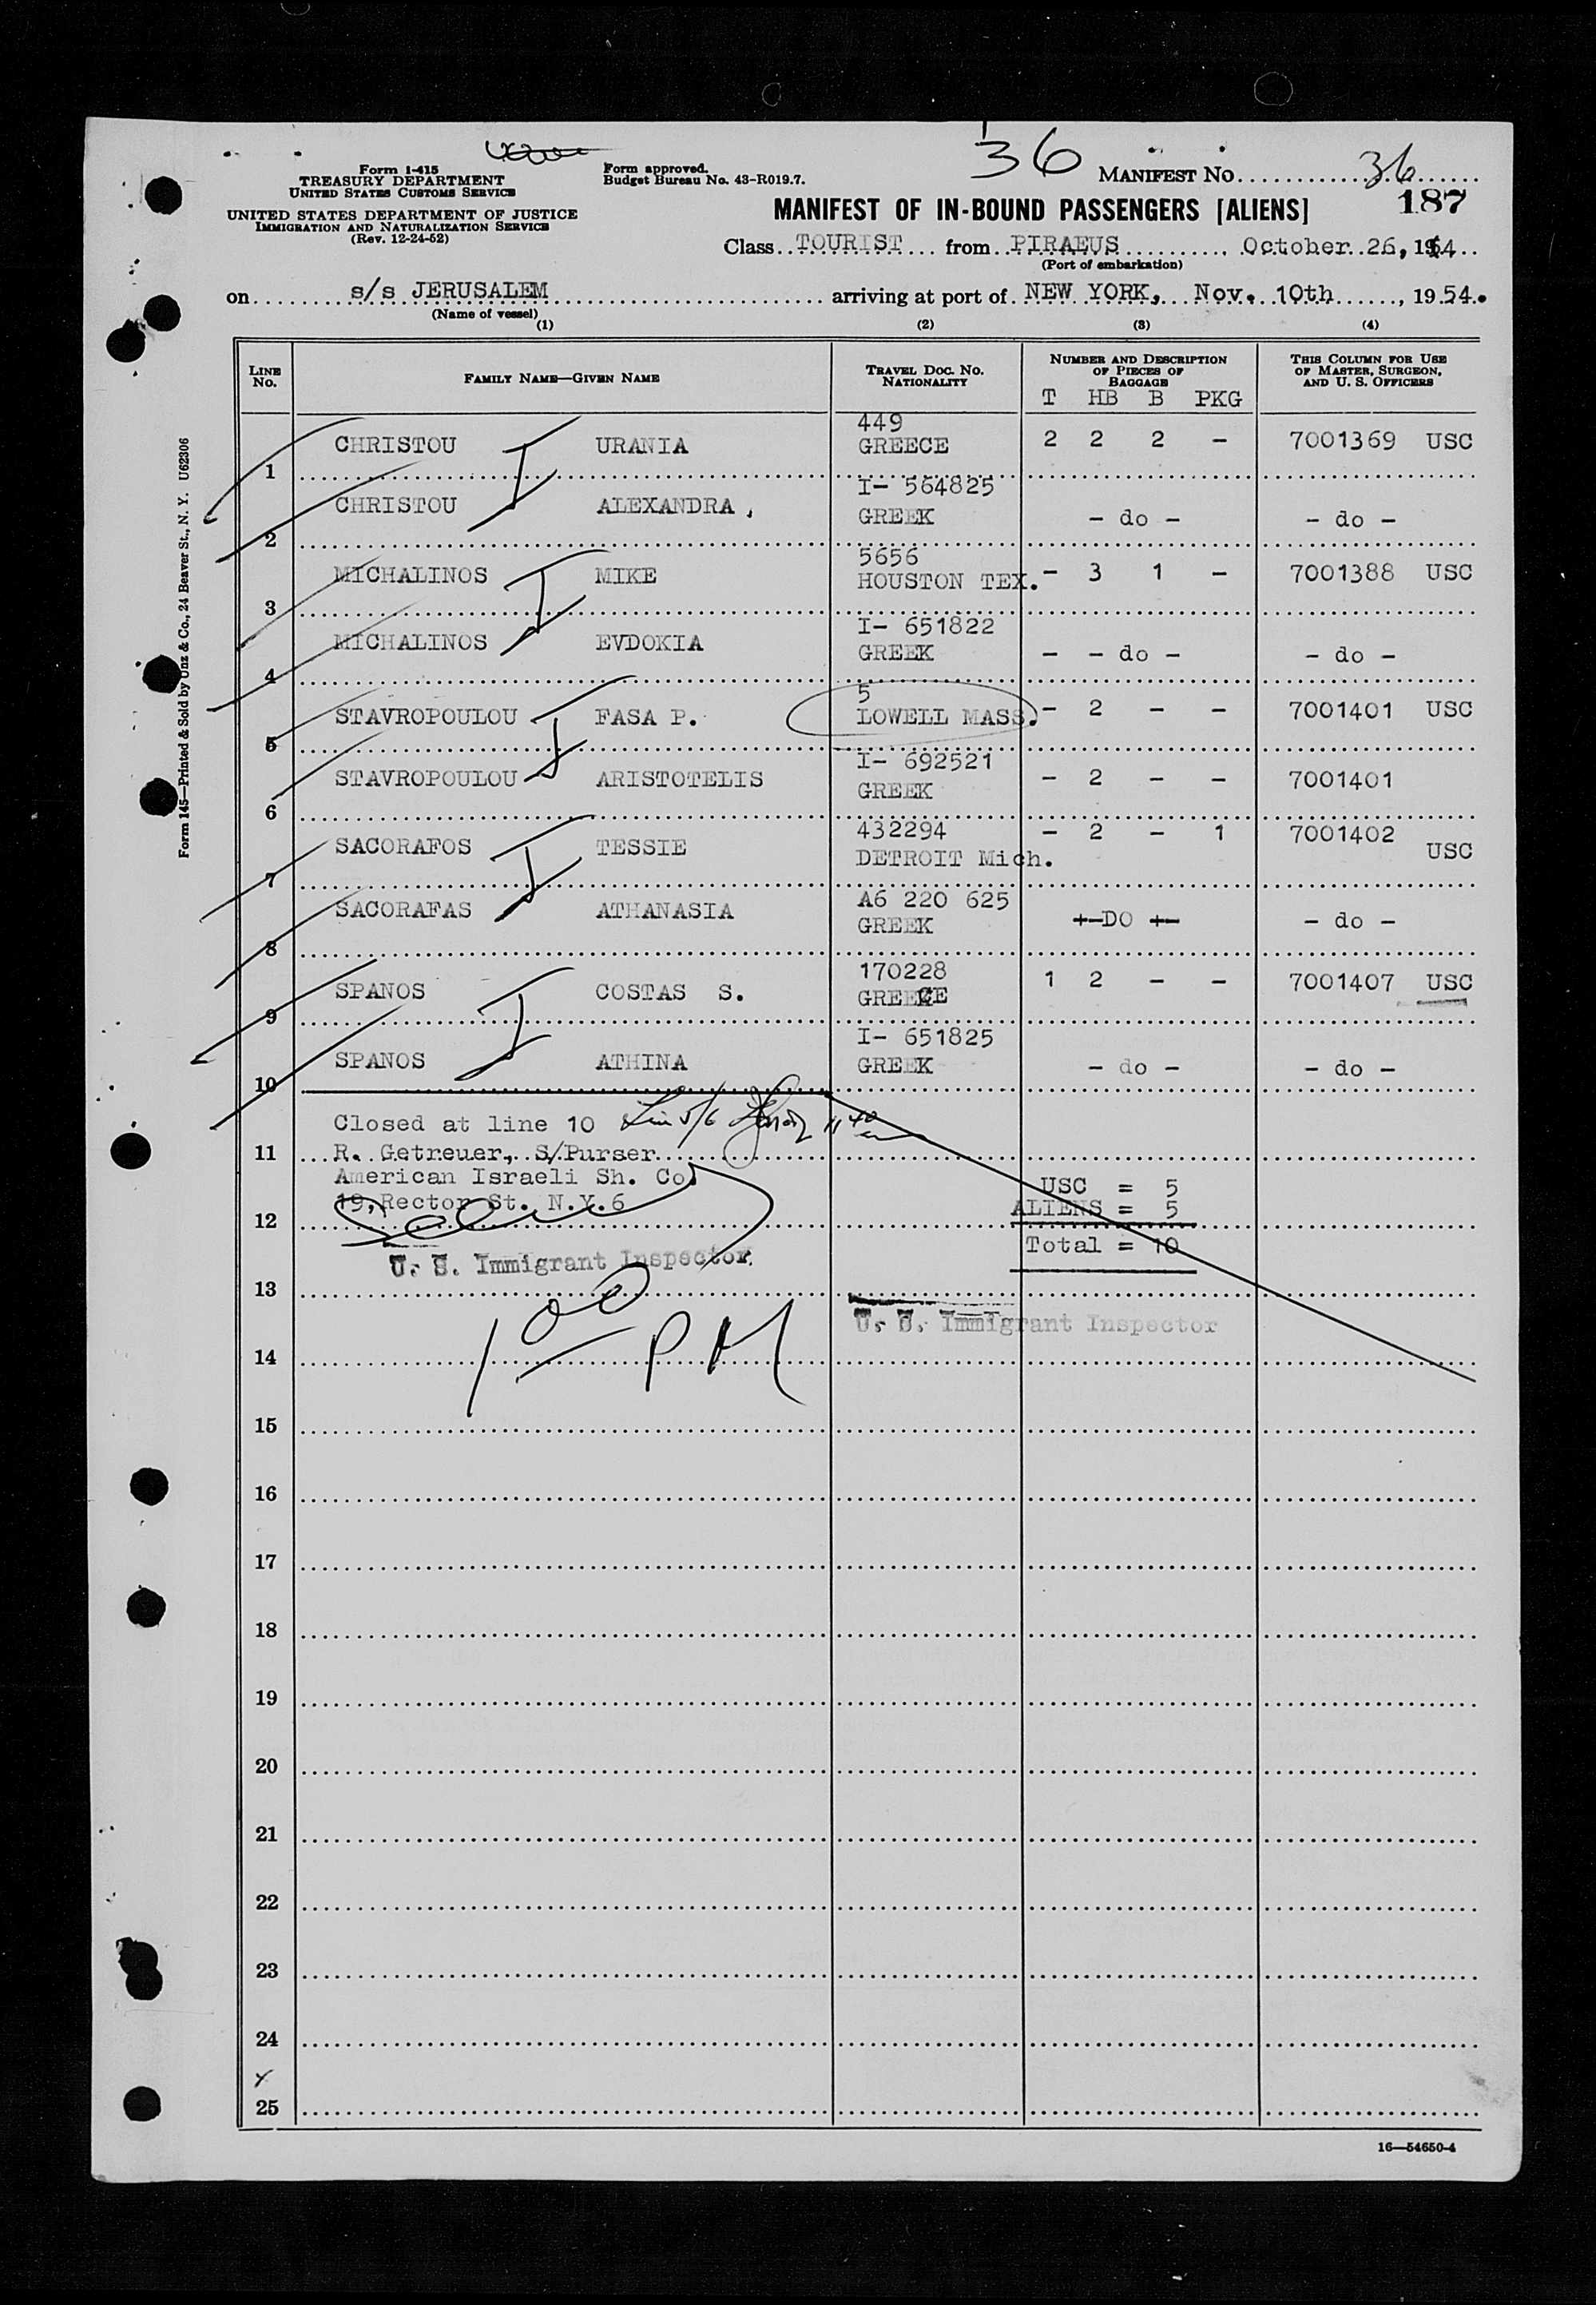 36
Form I-415
TREASURY DEPARTMENT
UNITED STATES CUSTOMS SERVICE
UNITED STATES DEPARTMENT OF JUSTICE
IMMIGRATION AND NATURALIZATION SERVICE
(Rev. 12-24-52)
Form approved.
Budget Bureau No. 43-R019.7.
MANIFEST NO. 36
187
MANIFEST OF IN-BOUND PASSENGERS [ALIENS]
Class TOURIST from PIRAEUS, October 26, 1954
(Port of embarkation)
on s/s JERUSALEM arriving at port of NEW YORK, Nov. 10th, 1954.
(Name of vessel)
(1) (2) (3) (4)
LINE NO. FAMILY NAME—GIVEN NAME TRAVEL DOC. NO. NATIONALITY NUMBER AND DESCRIPTION OF PIECES OF BAGGAGE THIS COLUMN FOR USE OF MASTER, SURGEON, AND U. S. OFFICERS
T HB B PKG
449
1 CHRISTOU URANIA GREECE 2 2 2 - 7001369 USC
I- 564825
2 CHRISTOU ALEXANDRA, GREEK - do - - do -
5656
3 MICHALINOS MIKE HOUSTON TEX. - 3 1 - 7001388 USC
I- 651822
4 MICHALINOS EVDOKIA GREEK - - do - - do -
5
5 STAVROPOULOU FASA P. LOWELL MASS. - 2 - - 7001401 USC
I- 692521
6 STAVROPOULOU ARISTOTELIS GREEK - 2 - - 7001401
432294
7 SACORAFOS TESSIE DETROIT Mich. - 2 - 1 7001402 USC
A6 220 625
8 SACORAFAS ATHANASIA GREEK +-DO +- - do -
170228
9 SPANOS COSTAS S. GREECE 1 2 - - 7001407 USC
I- 651825
10 SPANOS ATHINA GREEK - do - - do -
Closed at line 10
11 R. Getreuer, S/Purser
American Israeli Sh. Co.
19, Rector St. N.Y.6
12
USC = 5
ALIENS = 5
Total = 10
U. S. Immigrant Inspector
13
U. S. Immigrant Inspector
1 00 PM
14
15
16
17
18
19
20
21
22
23
24
25
16—54650-4
Form 145—Printed & Sold by Unz & Co., 24 Beaver St., N. Y. U62306